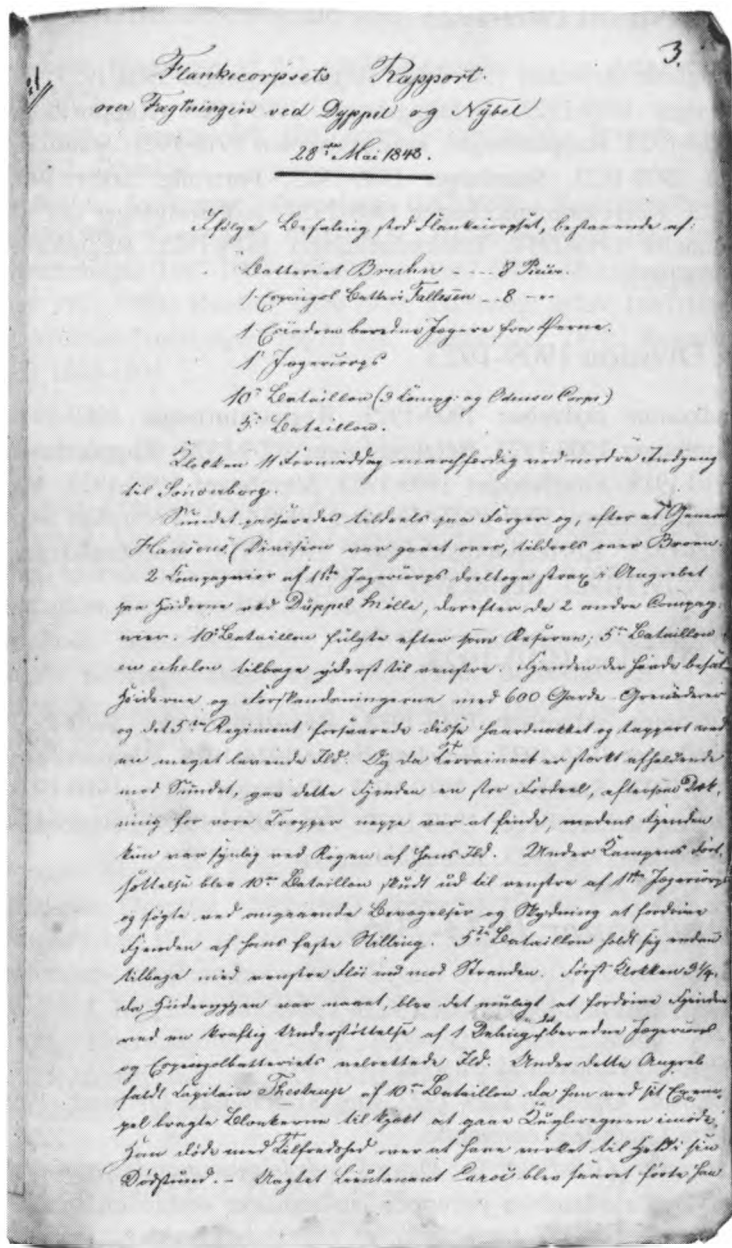 3.
Flankecorpsets Rapport.
over Fægtningen ved Dyppel og Nybel
28de Mai 1848.
Ifølge Befaling stod Flankecorpset, bestaaende af:
Batteriet Bruhn - - - 8 Piecer.
1 Espingol Batteri Fallesen - - 8 - -
1 beredne Jægere fra Fyen.
1 Jægercorps
10 Bataillon (3 Comp: og Odense Corps)
5 Bataillon.
Klokken 11 Formiddag marchfærdig ved nordre Indgang
til Sønderborg.
Sundet passeredes tildeels paa Færger og, efter at General
Hansens Division var gaaet over, tildeels over Broen.
2 Compagnier af 1ste Jægercorps deeltoge strax i Angrebet
paa Høiderne ved Düppel Mølle, derefter de 2 andre Compag-
nier. 10 Bataillon fulgte efter som Reserve; 5te Bataillon
en echelon tilbage yderst til venstre. Fjenden der havde besat
Høiderne og Forskandsningerne med 600 Garde Grenaderer
og det 5te Regiment forsvarede disse haardnakket og tappert ved
en meget levende Ild. Og da Terrainet er stærkt afheldende
mod Sundet, gav dette Fjenden en stor Fordeel, eftersom Dæk-
ning for vore Tropper neppe var at finde, medens Fjenden
kun var synlig ved Røgen af hans Ild. Under Kampens Fort-
sættelse blev 10de Bataillon skudt ud til venstre af 1ste Jægercorps
og søgte ved omgaaende Bevægelser og Skydning at fordrive
Fjenden af hans faste Stilling. 5te Bataillon holdt sig endnu
tilbage med venstre Fløi ned mod Stranden. Først Klokken 3 1/4,
da Høideryggen var naaet, blev det muligt at fordrive Fjenden
ved en kraftig Understøttelse af 1 Deling beredne Jægercorps
og Espingolbatteriets velrettede Ild. Under dette Angreb
faldt Capitain Thestrup af 10de Bataillon da han ved sit Exem-
pel bragte Blænkerne til kjækt at gaae Kugleregnen imøde,
Han døde med Tilfredshed over at have virket til Held i sin
Dødsstund. - Uagtet Lieutenant Carøe blev saaret førte han